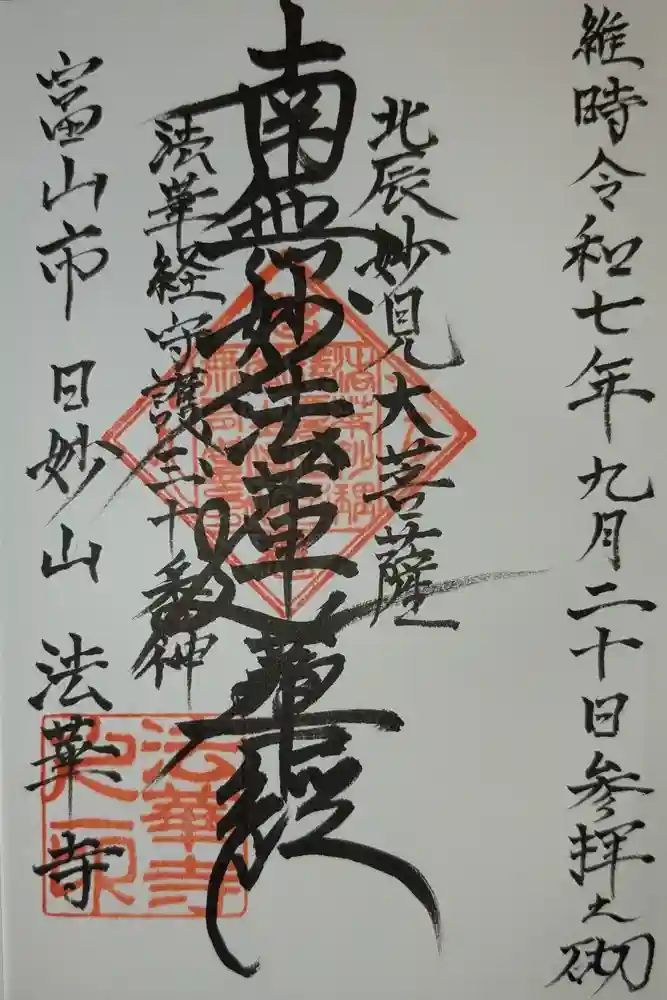 維時令和七年九月二十日参拝之砌
北辰妙見大菩薩
南無妙法蓮華経
法華経守護三十番神
富山市 日妙山 法華寺
法華寺